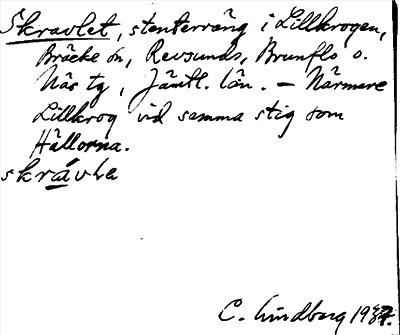 Skravlet, stenterräng i Lillkrogen,
Bräcke sn, Revsunds, Brunflo o.
Näs tg, Jämtl. län. – Närmare
Lillkrog vid samma stig som
Hällorna.
skrávlæ
C. Lindberg 1937.